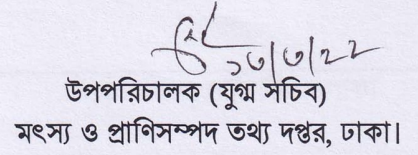 ১৩/৩/২২
উপপরিচালক (যুগ্ম সচিব)
মৎস্য ও প্রাণিসম্পদ তথ্য দপ্তর, ঢাকা।